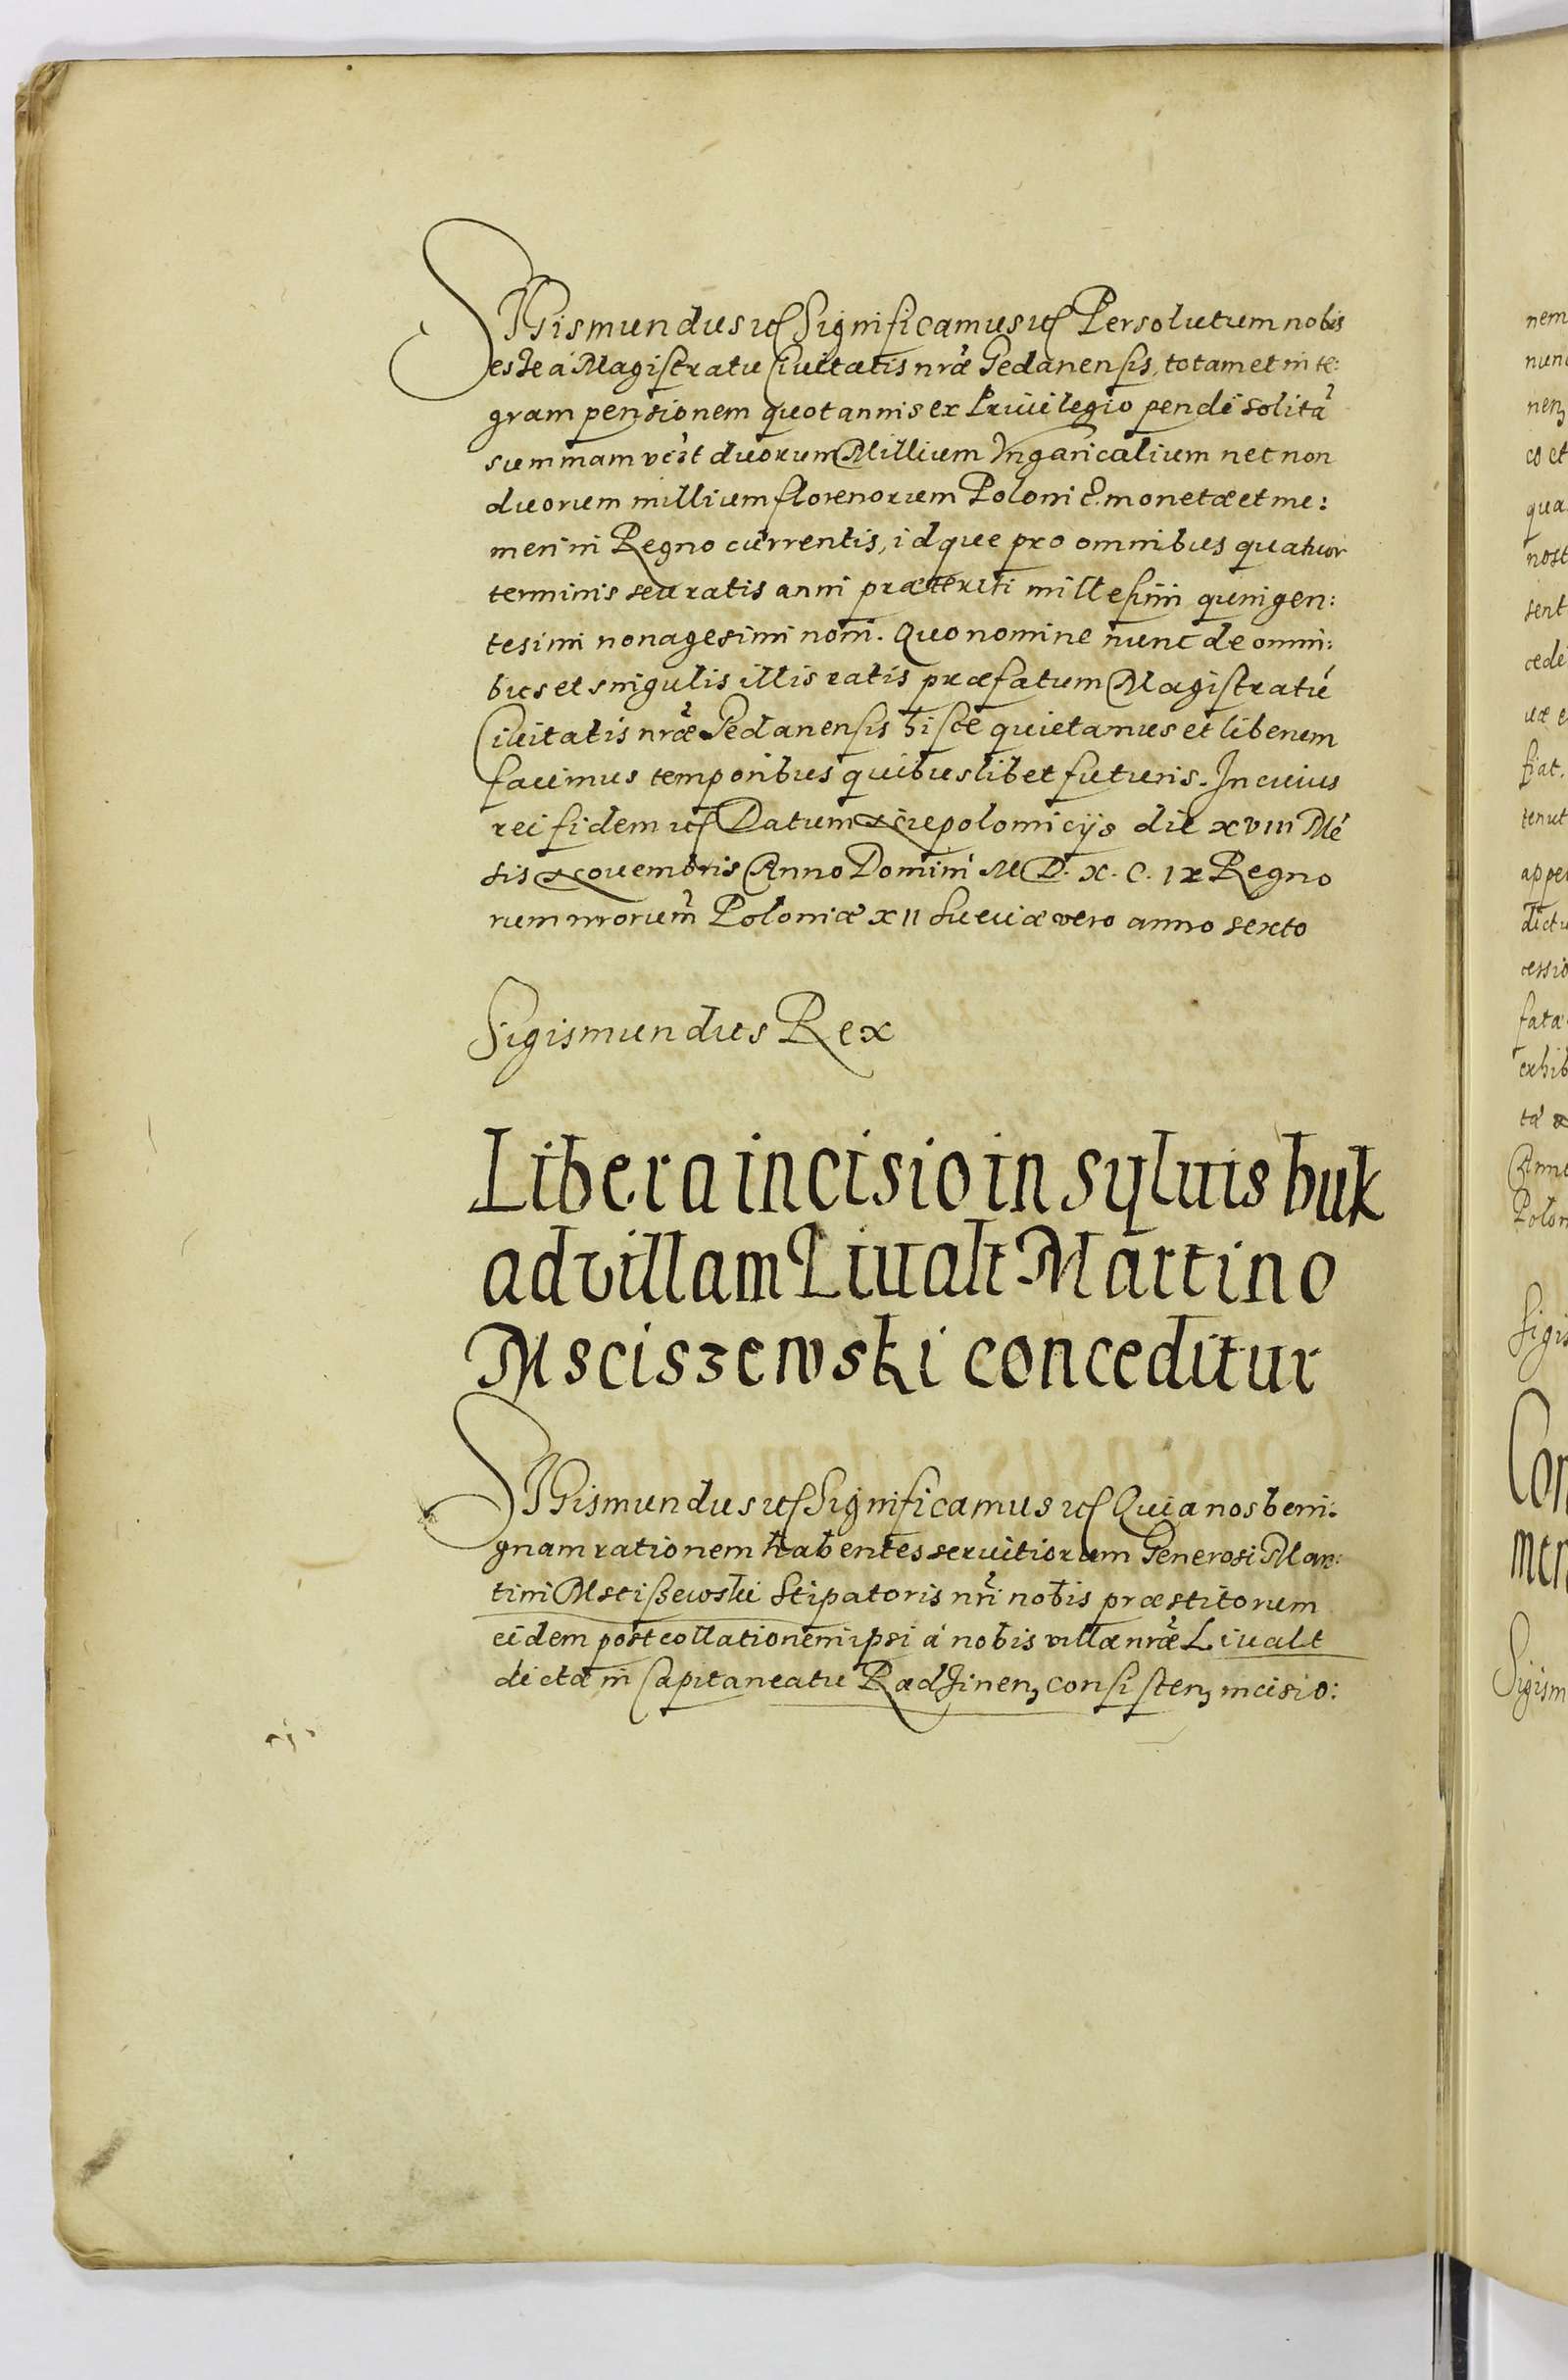 SIGismundus etc Significamus etc Persolutum nobis
esse á Magistratu Ciuitatis nræ Gedanensis, totam et inte:
gram pensionem quotannis ex Priuilegio pendi solitã
summam vŕst duorum Millium Vngaricalium nec non
duorum millium florenorum Polonic. monetæ et nu:
meri in Regno currentis, idque pro omnibus quatuor
terminis seu ratis anni præteriti millesimi quingen:
tesimi nonagesimi noni. Quo nomine nunc de omni:
bus et singulis illis ratis præfatum Magistratú
Ciuitatis nræ Gedanensis hisce quietamus et liberum
facimus temporibus quibuslibet futuris. In cuius
rei fidem etc Datum Niepolomicijs die XVIII Mẽ
sis Nouembris Anno Domini M D. X. C. IX Regno
rum nrorum Poloniæ XII Sueciæ vero anno sexto
Sigismundus Rex
Libera incisio in syluis buk
ad villam Liualt Martino
Msciszewski conceditur
SIGismundus etc Significamus etc Quia nos beni:
gnam rationem habentes seruitiorum Generosi Mar:
tini Mscißewski Stipatoris nri nobis præstitorum
eidem post collationem ipsi á nobis villæ nræ Liualt
dictæ in Capitaneatu Radzinen, consisten, incisio:
nem
nunc
nen,
co et
qua
nost
sent
cede
uæ e
fiat.
tenut
appe
dictu
cessio
fata
exhib
tá
Anno
Polon
Sigis
Con
men
Sigism